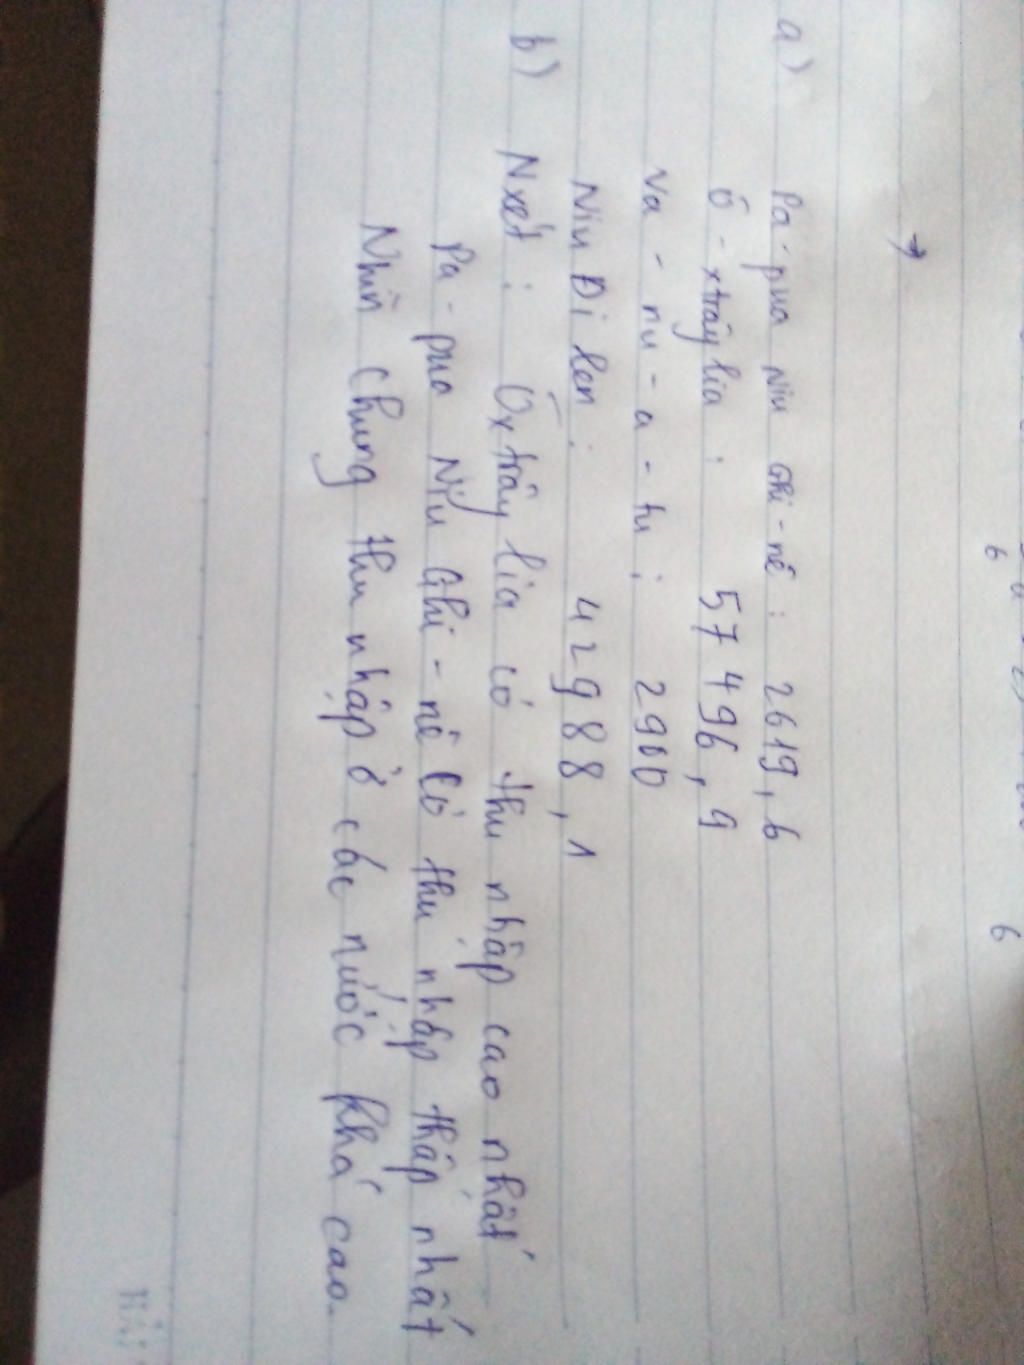 a) Pa-pua Niu Ghi-nê : 2619,6
Ô-xtrây lia : 57 496,9
Va-nu-a-tu : 2900
Niu Đi len : 42988,1
b) Nxét : Ôxtrây lia có thu nhập cao nhất
Pa-pua Niu Ghi-nê có thu nhập thấp nhất
Nhìn chung thu nhập ở các nước khá cao.